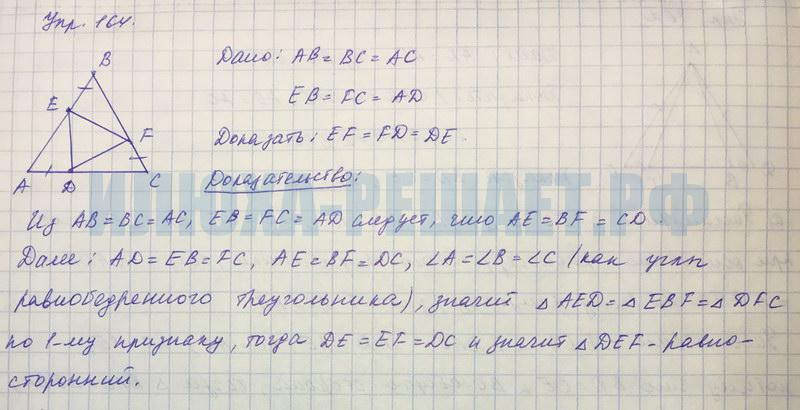 Упр. 164.
Дано: AB = BC = AC
EB = FC = AD
Доказать: EF = FD = DE.
Доказательство:
B
E
F
A
D
C
ИЛЮХА-РЕШАЕТ.РФ
Из AB = BC = AC, EB = FC = AD следует, что AE = BF = CD.
Далее: AD = EB = FC, AE = BF = DC, ∠A = ∠B = ∠C (как углы
равнобедренного треугольника), значит △ AED = △ EBF = △ DFC
по 1-му признаку, тогда DE = EF = DC и значит △ DEF - равно-
сторонний.